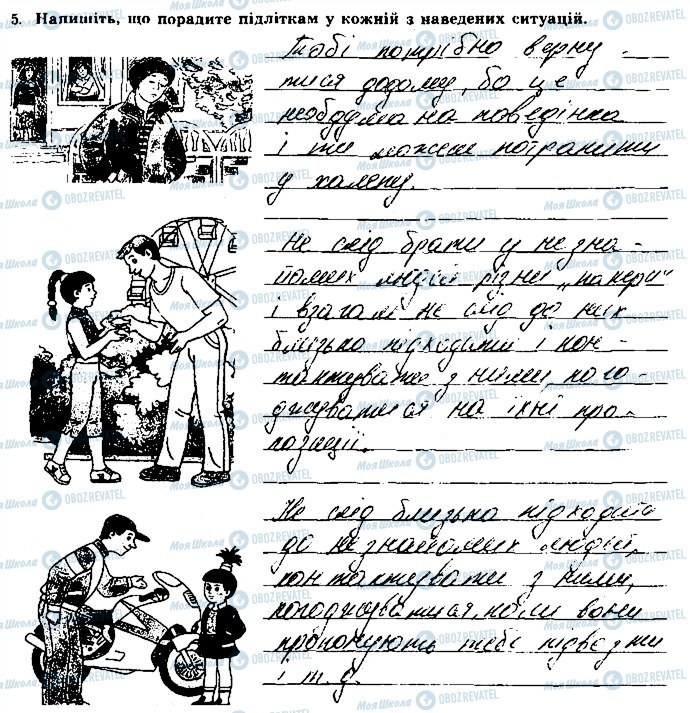 5. Напишіть, що порадите підліткам у кожній з наведених ситуацій.
Тобі потрібно верну -
тися додому, бо це
необдумана поведінка
і ти можеш потрапити
у халепу.
Не слід брати у незна -
йомих людей різні „
і взагалі не слід до них
близько підходити і кон -
тактувати з ними, пого -
джуватися на їхні про -
позиції.
Не слід близько підходити
до незнайомих людей,
контактувати з ними,
погоджуватися, коли вони
пропонують тебе підвезти
і т. д.
Моя Школа OBOZREVATEL